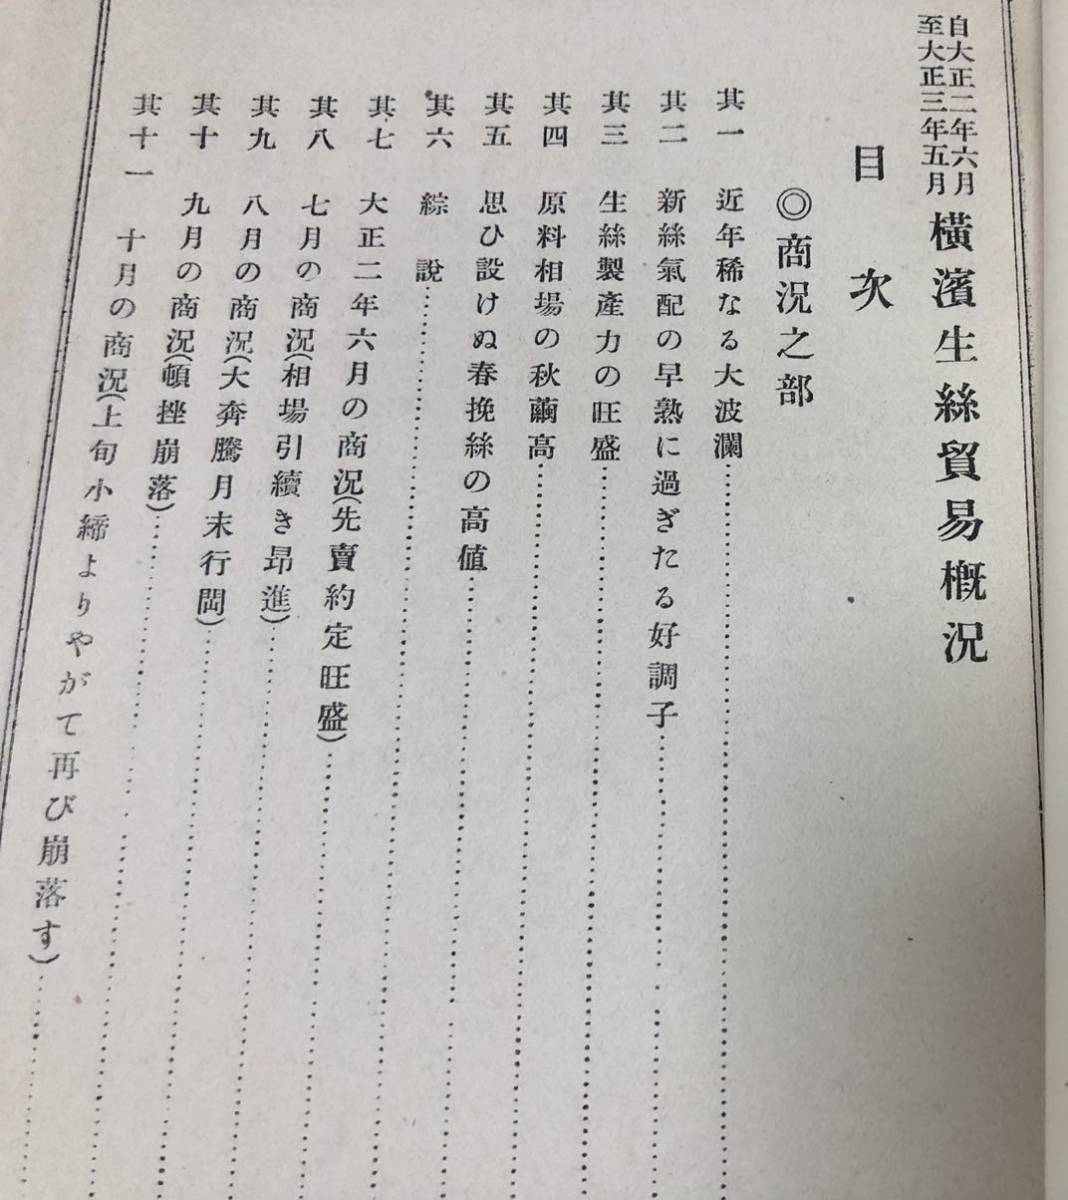 自大正二年六月
至大正三年五月
橫濱生絲貿易槪況
目次
◎商況之部
其一 近年稀なる大波瀾
其二 新絲氣配の早熟に過ぎたる好調子
其三 生絲製產力の旺盛
其四 原料相場の秋繭高
其五 思ひ設けぬ春挽絲の高値
其六 綜說
其七 大正二年六月の商況(先賣約定旺盛)
其八 七月の商況(相場引續き昂進)
其九 八月の商況(大奔騰月末行悶)
其十 九月の商況(頓挫崩落)
其十一 十月の商況(上旬小締よりやがて再び崩落す)